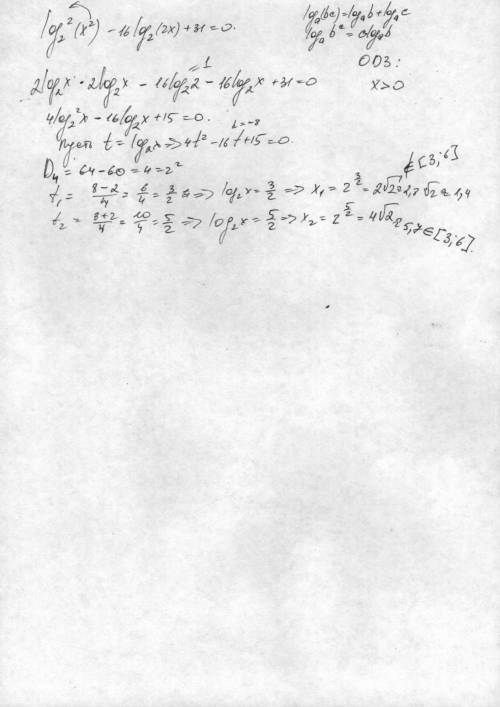 log₂²(x²) - 16log₂(2x) + 31 = 0.
logₐ(bc) = logₐb + logₐc
logₐbᶜ = clogₐb
ОДЗ:
x > 0
1
2log₂x · 2log₂x - 16log₂2 - 16log₂x + 31 = 0
4log₂²x - 16log₂x + 15 = 0.
k = -8
Пусть t = log₂x => 4t² - 16t + 15 = 0.
D₄ = 64 - 60 = 4 = 2²
∉ [3; 6]
t₁ = (8-2)/4 = 6/4 = 3/2 => log₂x = 3/2 => x₁ = 2^(3/2) = 2√2 ≈ 2,7 √2 ≈ 1,4
t₂ = (8+2)/4 = 10/4 = 5/2 => log₂x = 5/2 => x₂ = 2^(5/2) = 4√2 ≈ 5,7 ∈ [3; 6].